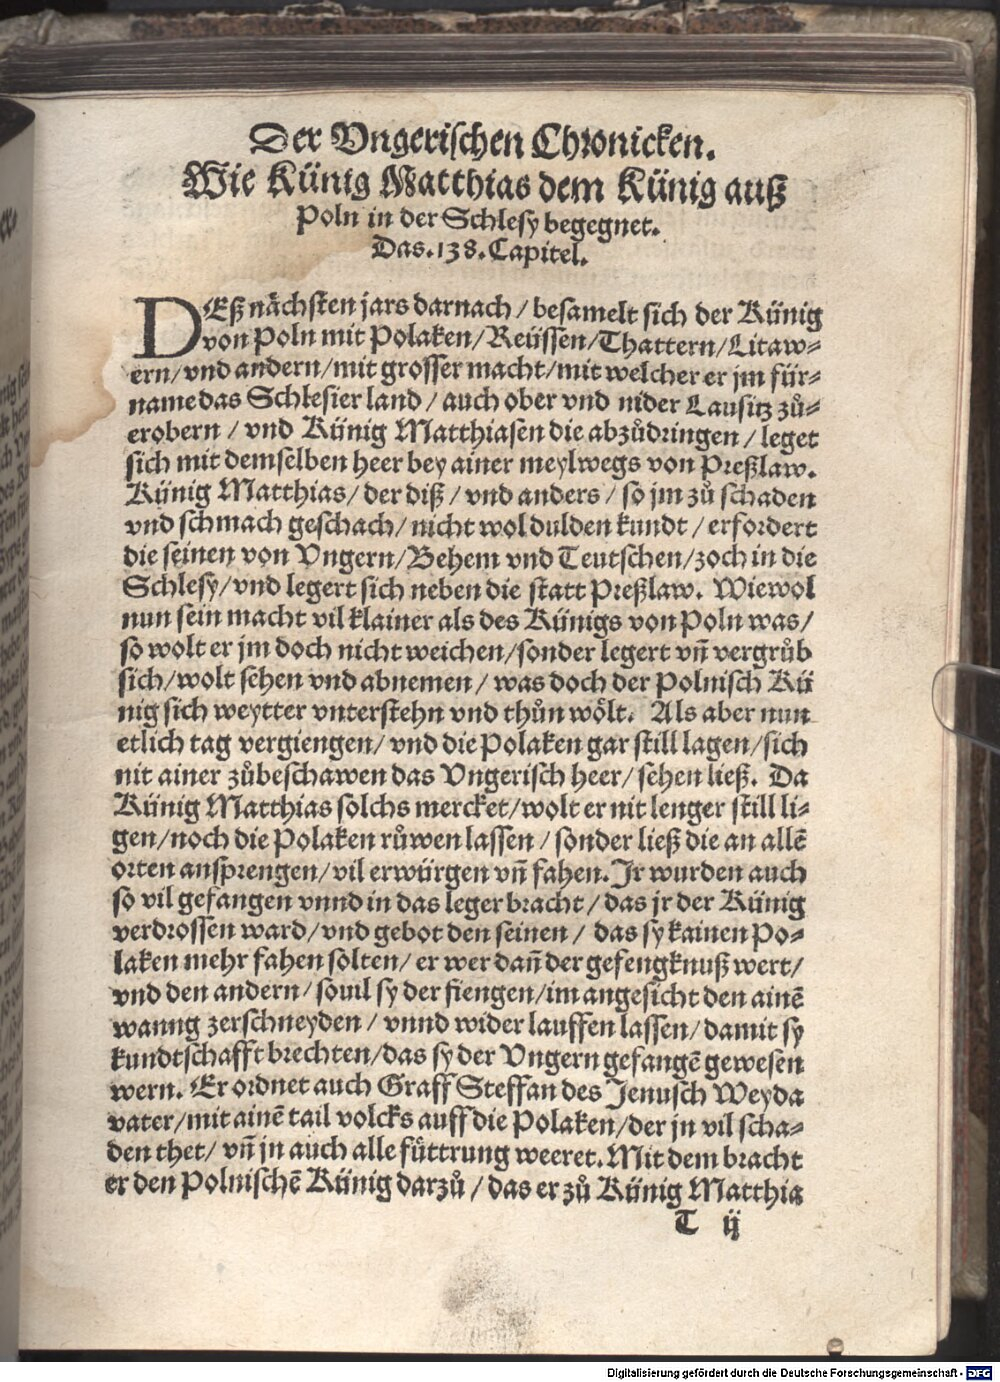 Der Vngerischen Chronicken.
Wie Künig Matthias dem Künig auß
Poln in der Schlesy begegnet.
Das.138.Capitel.
DEß nächsten jars darnach / besamelt sich der Künig
von Poln mit Polaken/Reüssen/Thattern/Litaw-
ern/vnd andern/mit grosser macht/mit welcher er jm für-
name das Schlesier land / auch ober vnd nider Lausitz zů-
erobern / vnd Künig Matthiasen die abzůdringen / leget
sich mit demselben heer bey ainer meylwegs von Preßlaw.
Künig Matthias/ der diß / vnd anders / so jm zů schaden
vnd schmach geschach/ nicht wol dulden kundt / erfordert
die seinen von Vngern/Behem vnd Teutschen/zoch in die
Schlesy/vnd legert sich neben die statt Preßlaw. Wiewol
nun sein macht vil klainer als des Künigs von Poln was/
so wolt er jm doch nicht weichen/sonder legert vñ vergrůb
sich/wolt sehen vnd abnemen / was doch der Polnisch Kü
nig sich weytter vnterstehn vnd thůn wölt. Als aber nun
etlich tag vergiengen/ vnd die Polaken gar still lagen/sich
nit ainer zůbeschawen das Vngerisch heer/ sehen ließ. Da
Künig Matthias solchs mercket/wolt er nit lenger still li-
gen/noch die Polaken růwen lassen / sonder ließ die an allē
orten ansprengen/ vil erwürgen vñ fahen. Jr wurden auch
so vil gefangen vnnd in das leger bracht / das jr der Künig
verdrossen ward/ vnd gebot den seinen / das sy kainen Po-
laken mehr fahen solten/ er wer dañ der gefengknuß wert/
vnd den andern / souil sy der fiengen/im angesicht den ainē
wanng zerschneyden / vnnd wider lauffen lassen/ damit sy
kundtschafft brechten/das sy der Vngern gefangē gewesen
wern. Er ordnet auch Graff Steffan des Jenusch Weyda
vater/mit ainē tail volcks auff die Polaken/der jn vil scha-
den thet/ vñ jn auch alle füttrung weeret. Mit dem bracht
er den Polnischē Künig darzů / das er zů Künig Matthia
T ij
Digitalisierung gefördert durch die Deutsche Forschungsgemeinschaft - DFG